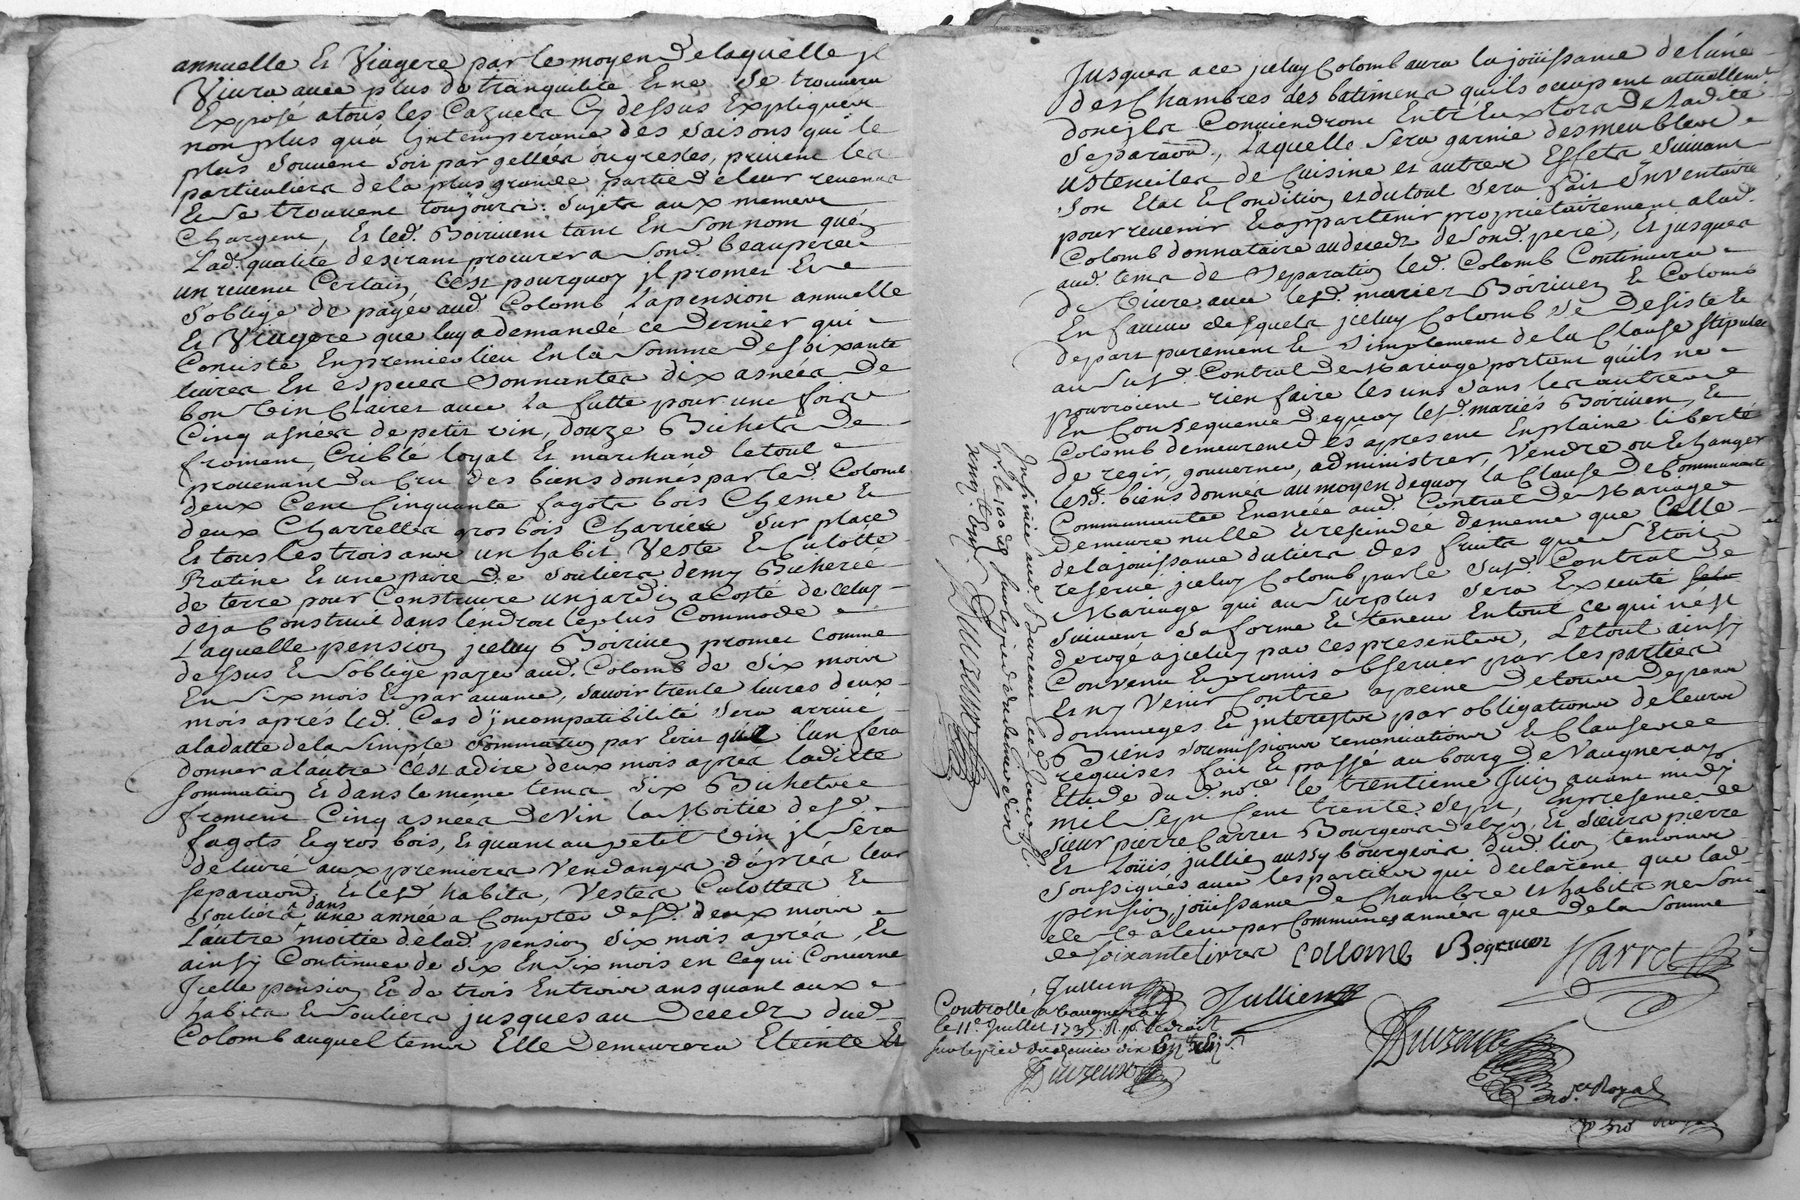 annuelle Et Viagere par le moyen de laquelle jl
Viura auec plus de tranquilité Et ne se trouuera
Exposé a tous les Cazuels Cy dessus Expliquées
non plus qua Lintemperance des saisons qui le
plus souuent soit par gellées ou gresles, priuent les
particuliers de la plus grande partie de leur reuenus
Et se trouuent toujours sujets aux memes
Charges, Et led. Boiriuent tant En son nom que
Lad. qualité desirant procurer a sond. beaupere
un reuenu Certain C'est pourquoy jl promet Et
s'oblige de payer aud. Colomb La pension annuelle
Et Viagere que luy a demandé ce dernier qui
Consiste En premier lieu En la somme de soixante
liures En especes sonnantes dix asnées de
bon Vin Clairet auec la futte pour une fois
Cinq asnées de petit vin, douze Bichets de
froment, Criblé loyal Et marchand le tout
prouenant du Cru des biens donnés par led. Colomb
deux Cent Cinquante fagots bois Chesne Et
deux Charrettes gros bois Charriés sur place
Et tous les trois ans un habit Veste Et Culotte
Ratine Et une paire de souliers demy Bicherée
de terre pour Construire un jardin a Costé de celuy
deja Construit dans l'endroit le plus Commode
Laquelle pension jceluy Boiriuen promet comme
dessus Et s'oblige payer aud. Colomb de six mois
En six mois Et par auance, sauoir trente liures deux
mois aprés led. Cas d'jncompatibilité sera arriué
a la datte de la simple sommation par Ecrit que l'un fera
donner a l'autre c'est a dire deux mois apres laditte
sommation Et dans le meme tems six Bichets
froment Cinq asnées de Vin la Moitié desd.
fagots Et gros bois, Et quant au petit Vin jl sera
deliuré aux premieres Vendanges d'aprés leur
separaon Et lesd. habits, Vestes Culottes Et
souliers dans une année a Compter desd. deux mois
L'autre moitié de lad. pension six mois aprés, Et
ainsy Continuer de six En six mois en ce qui Concerne
Jcelle pension Et de trois En trois ans quant aux
habits Et souliers jusques au deceds dud.
Colomb auquel tems Elle demeurera Eteinte Et
Jusques a ce jceluy Colomb aura la joüissance de l'une
des Chambres des batimens qu'ils occupent actuellement
dont jls Conuiendront Entr'Eux lors de Ladite
separaon, Laquelle sera garnie des meubles
ustenciles de Cuisine et autres Effets suiuant
son Etat Et Condition et du tout sera fait Inventaire
pour reuenir Et appartenir proprietairement a lad.
Colomb donnataire au deceds de sond. pere, Et jusques
aud. tems de separation led. Colomb Continuera
de Viure auec lesd. mariez Boiriuen Et Colomb
En faueur desquels jceluy Colomb se desiste Et
depart purement Et simplement de la Clause stipulée
au susd. Contrat de Mariage portant qu'ils ne
pourroient rien faire les uns sans les autres
En Consequence de quoy lesd. mariés Boiriuen, Et
Colomb demeurent dés apresent En plaine liberté
de regir, gouuerner, administrer, Vendre ou Echanger
lesd. biens donnés au moyen de quoy la Clause de Communauté
Communauté Enoncée aud. Contrat de Mariage
demeure nulle Et rescindée de meme que Celle
de la joüissance du tiers des fruits que s'Etoit
reserué jceluy Colomb par le susd. Contrat de
Mariage qui au surplus sera Executé selon
suiuant sa forme Et teneur En tout ce qui n'est
derogé a jceluy par ces presentes, Le tout ainsy
Conuenu Et promis obseruer par les parties
Et n'y Venir Contre a peine de tous depens
dommages Et interests par obligations de leurs
Biens soumissions renonciations Et Clauses
requises fait Et passé au bourg de Vaugneray
Etude dud. nore. le trentieme Juin auant midy
mil sept Cent trente sept, En presence de
sieur pierre Carret Bourgeois de Lyon, Et sieurs pierre
Et Loüis jullien aussy bourgeois dud. lion temoins
soussignés auec les parties qui declarent que lad.
pension, joüissance de Chambre et habits ne sont
de Valeur par Communes années que de la somme
de soixante liures Collomb Boyriuen Harret
Jullien Jullien
Controllé a Vaugneray
le 11e. Juillet 1737. R
Duvzeux
Duvzeux
nore. Royal